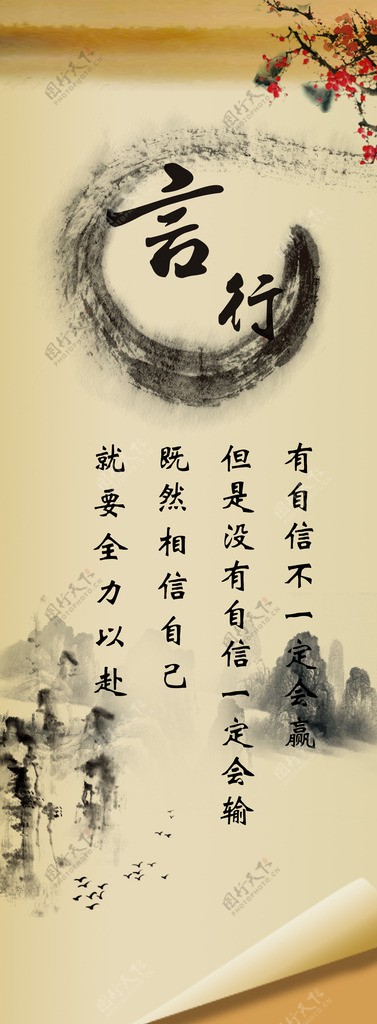 言行
有自信不一定会赢
但是没有自信一定会输
既然相信自己
就要全力以赴
图行天下
PHOTOPHOTO.CN